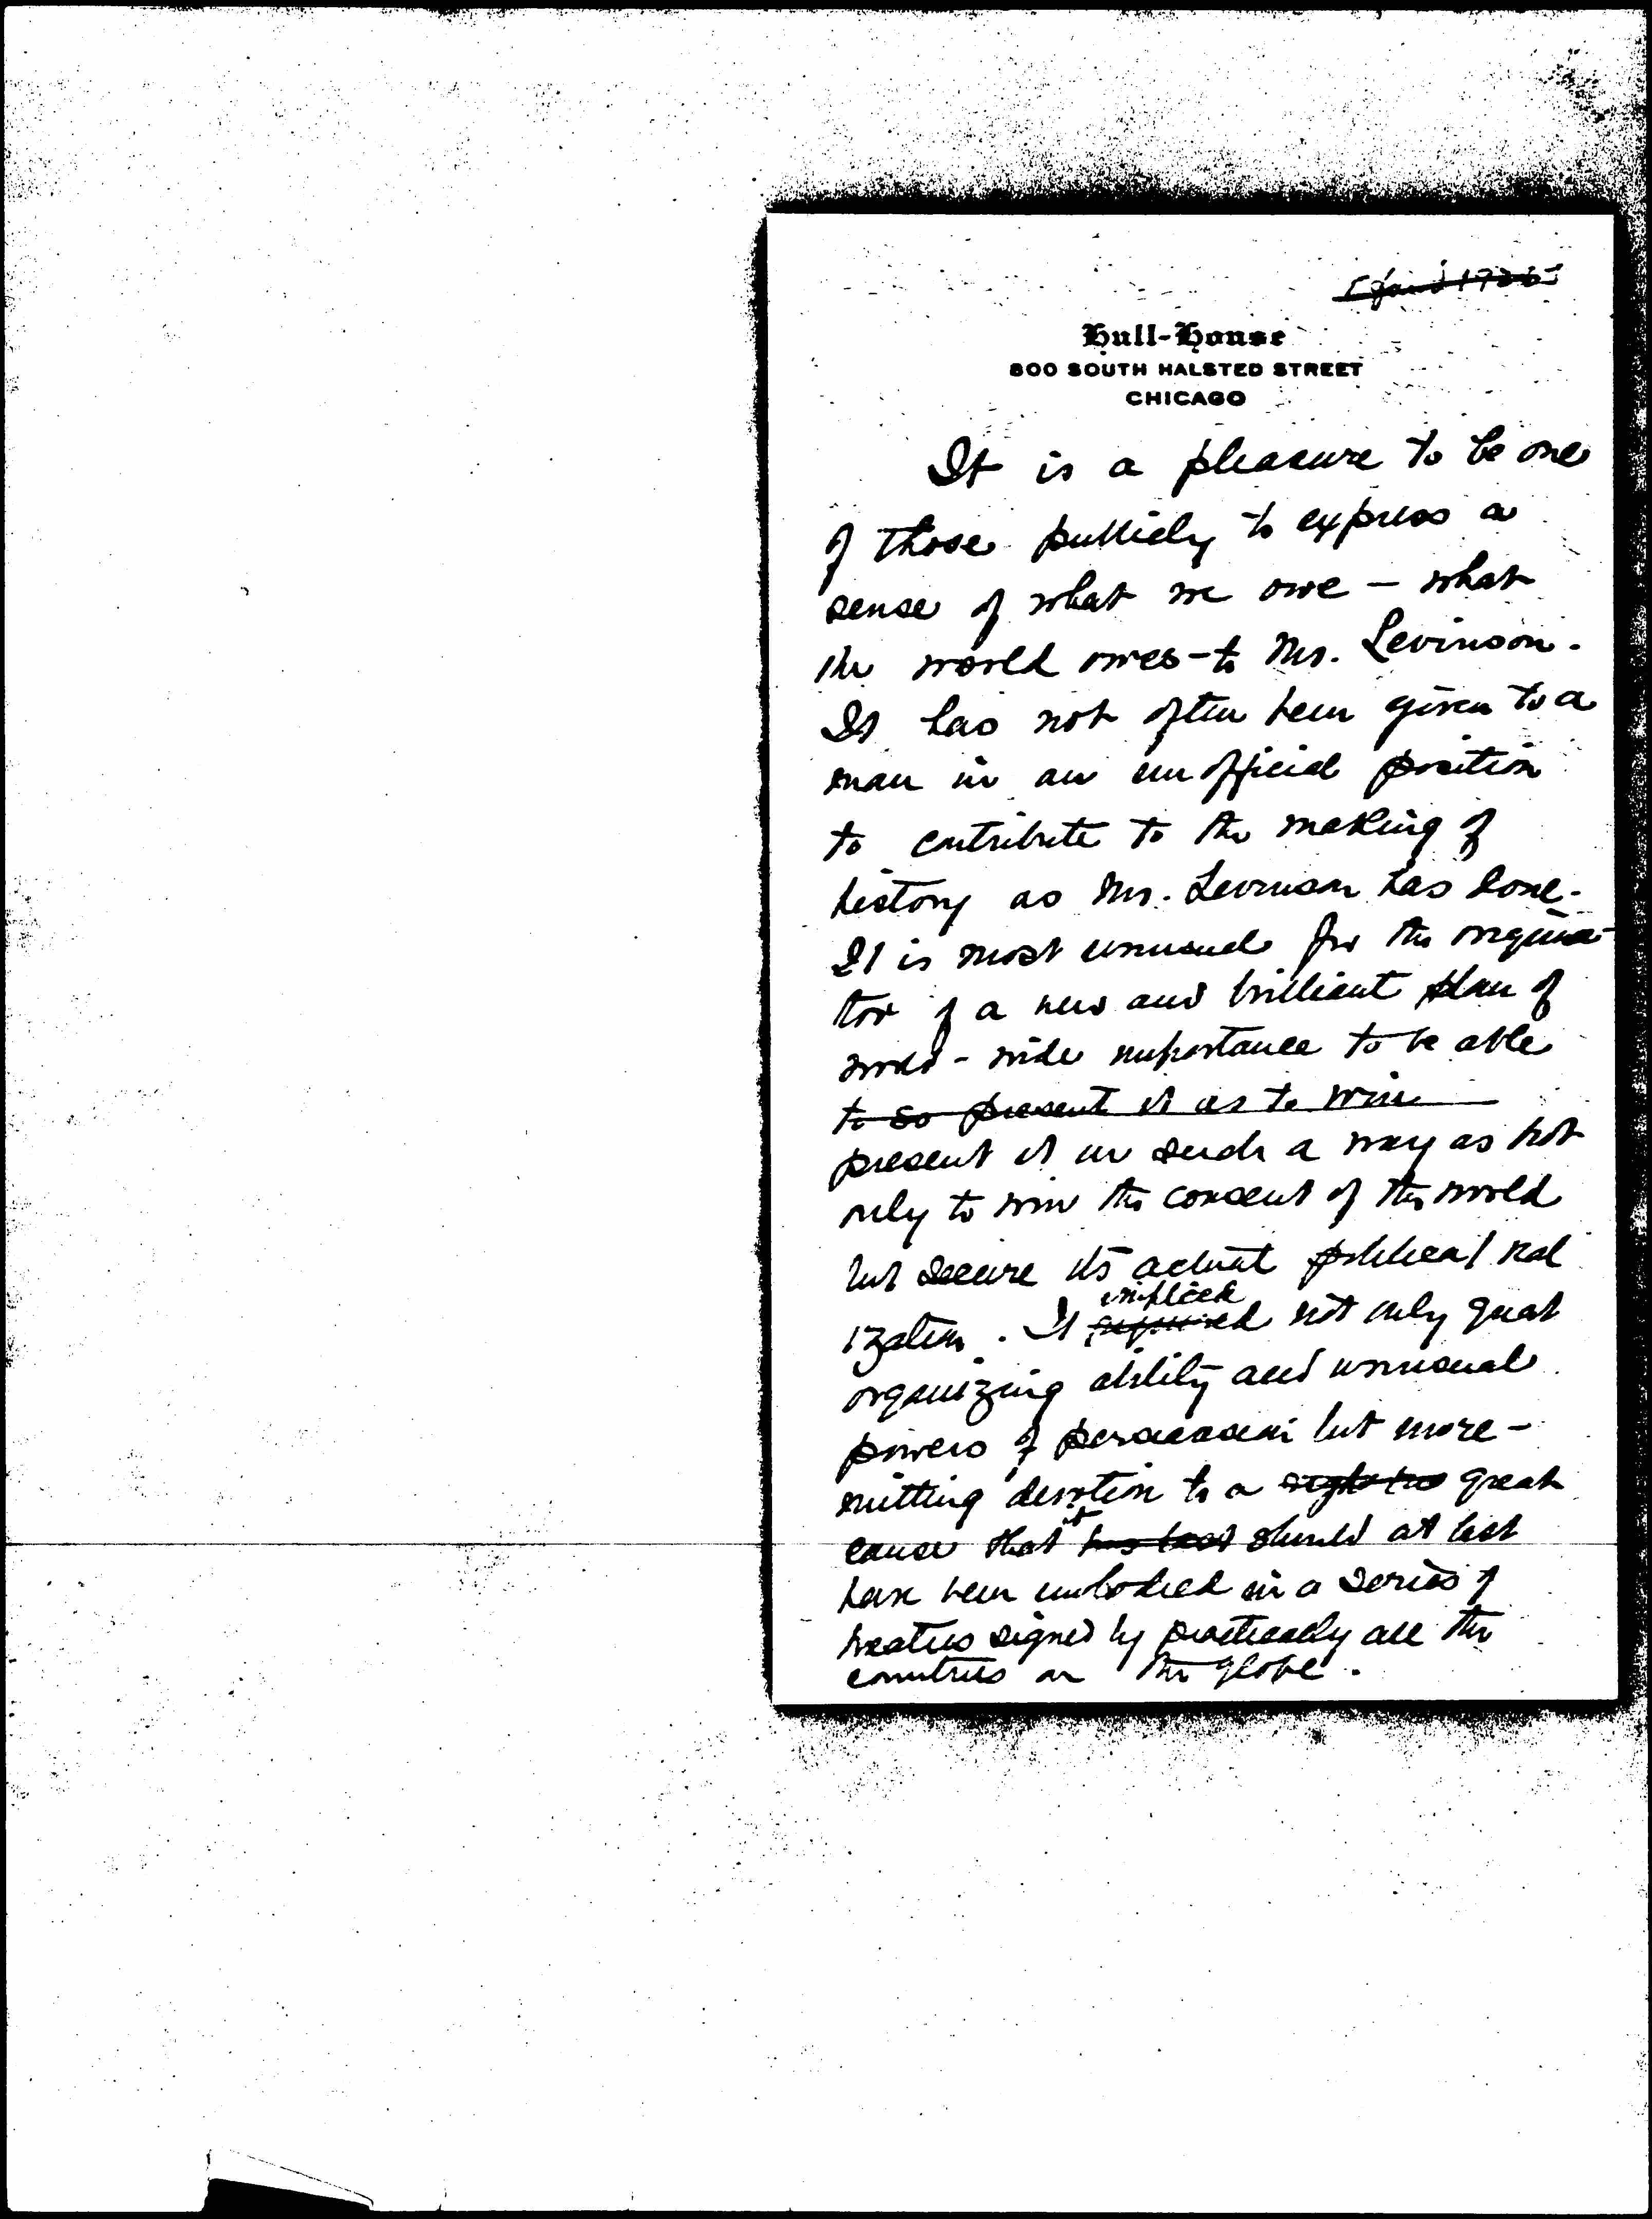 Hull-House
800 SOUTH HALSTED STREET
CHICAGO
It is a pleasure to be one
of those publicly to express a
sense of what we owe – what
the world owes – to Mr. Levinson.
It has not often been given to a
man in an unofficial position
to contribute to the making of
history as Mr. Levinson has done.
It is most unusual for the origina-
tor of a new and brilliant plan of
world-wide importance to be able
to so present it as to win
present it in such a way as not
only to win the consent of the world
but secure its actual political real
ization. It implied not only great
organizing ability and unusual
powers of persuasion but unre-
mitting devotion to a great
cause that it should at last
have been embodied in a series of
treaties signed by practically all the
countries on the globe.